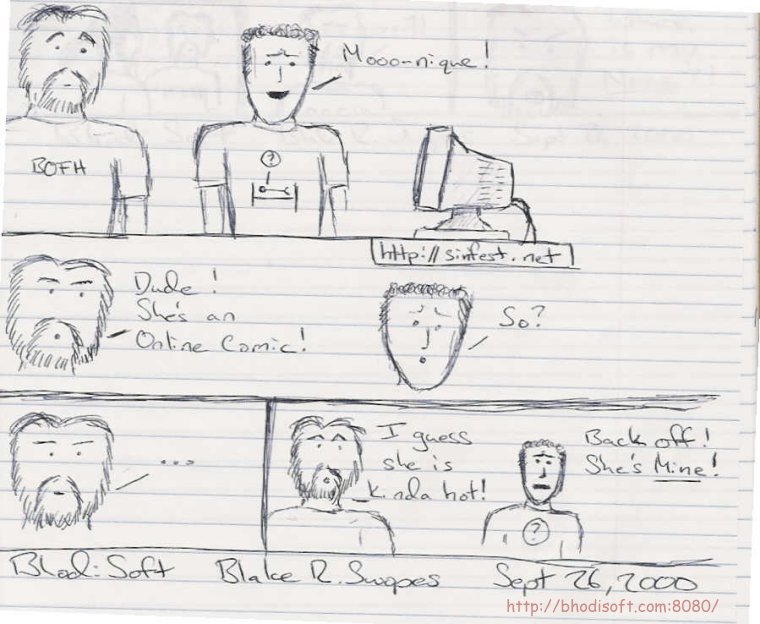 Mooo-nique!
BOFH
?
http://sinfest.net
Dude!
She's an
Online Comic!
So?
...
I guess
she is
kinda hot!
Back off!
She's Mine!
?
Bhodi Soft Blake R. Swopes Sept 26, 2000
http://bhodisoft.com:8080/